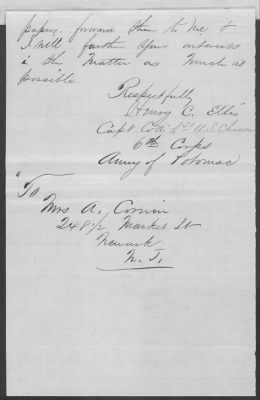 papers. forward them to me &
I will further your interests
in the Matter as Much as
possible
Respectfully
Henry C. Ellis
Capt Co 1st U.S.
6th Corps
Army of Potomac
"To
Mrs A, Corwin
248 1/2 Market St
Newark
N. J.